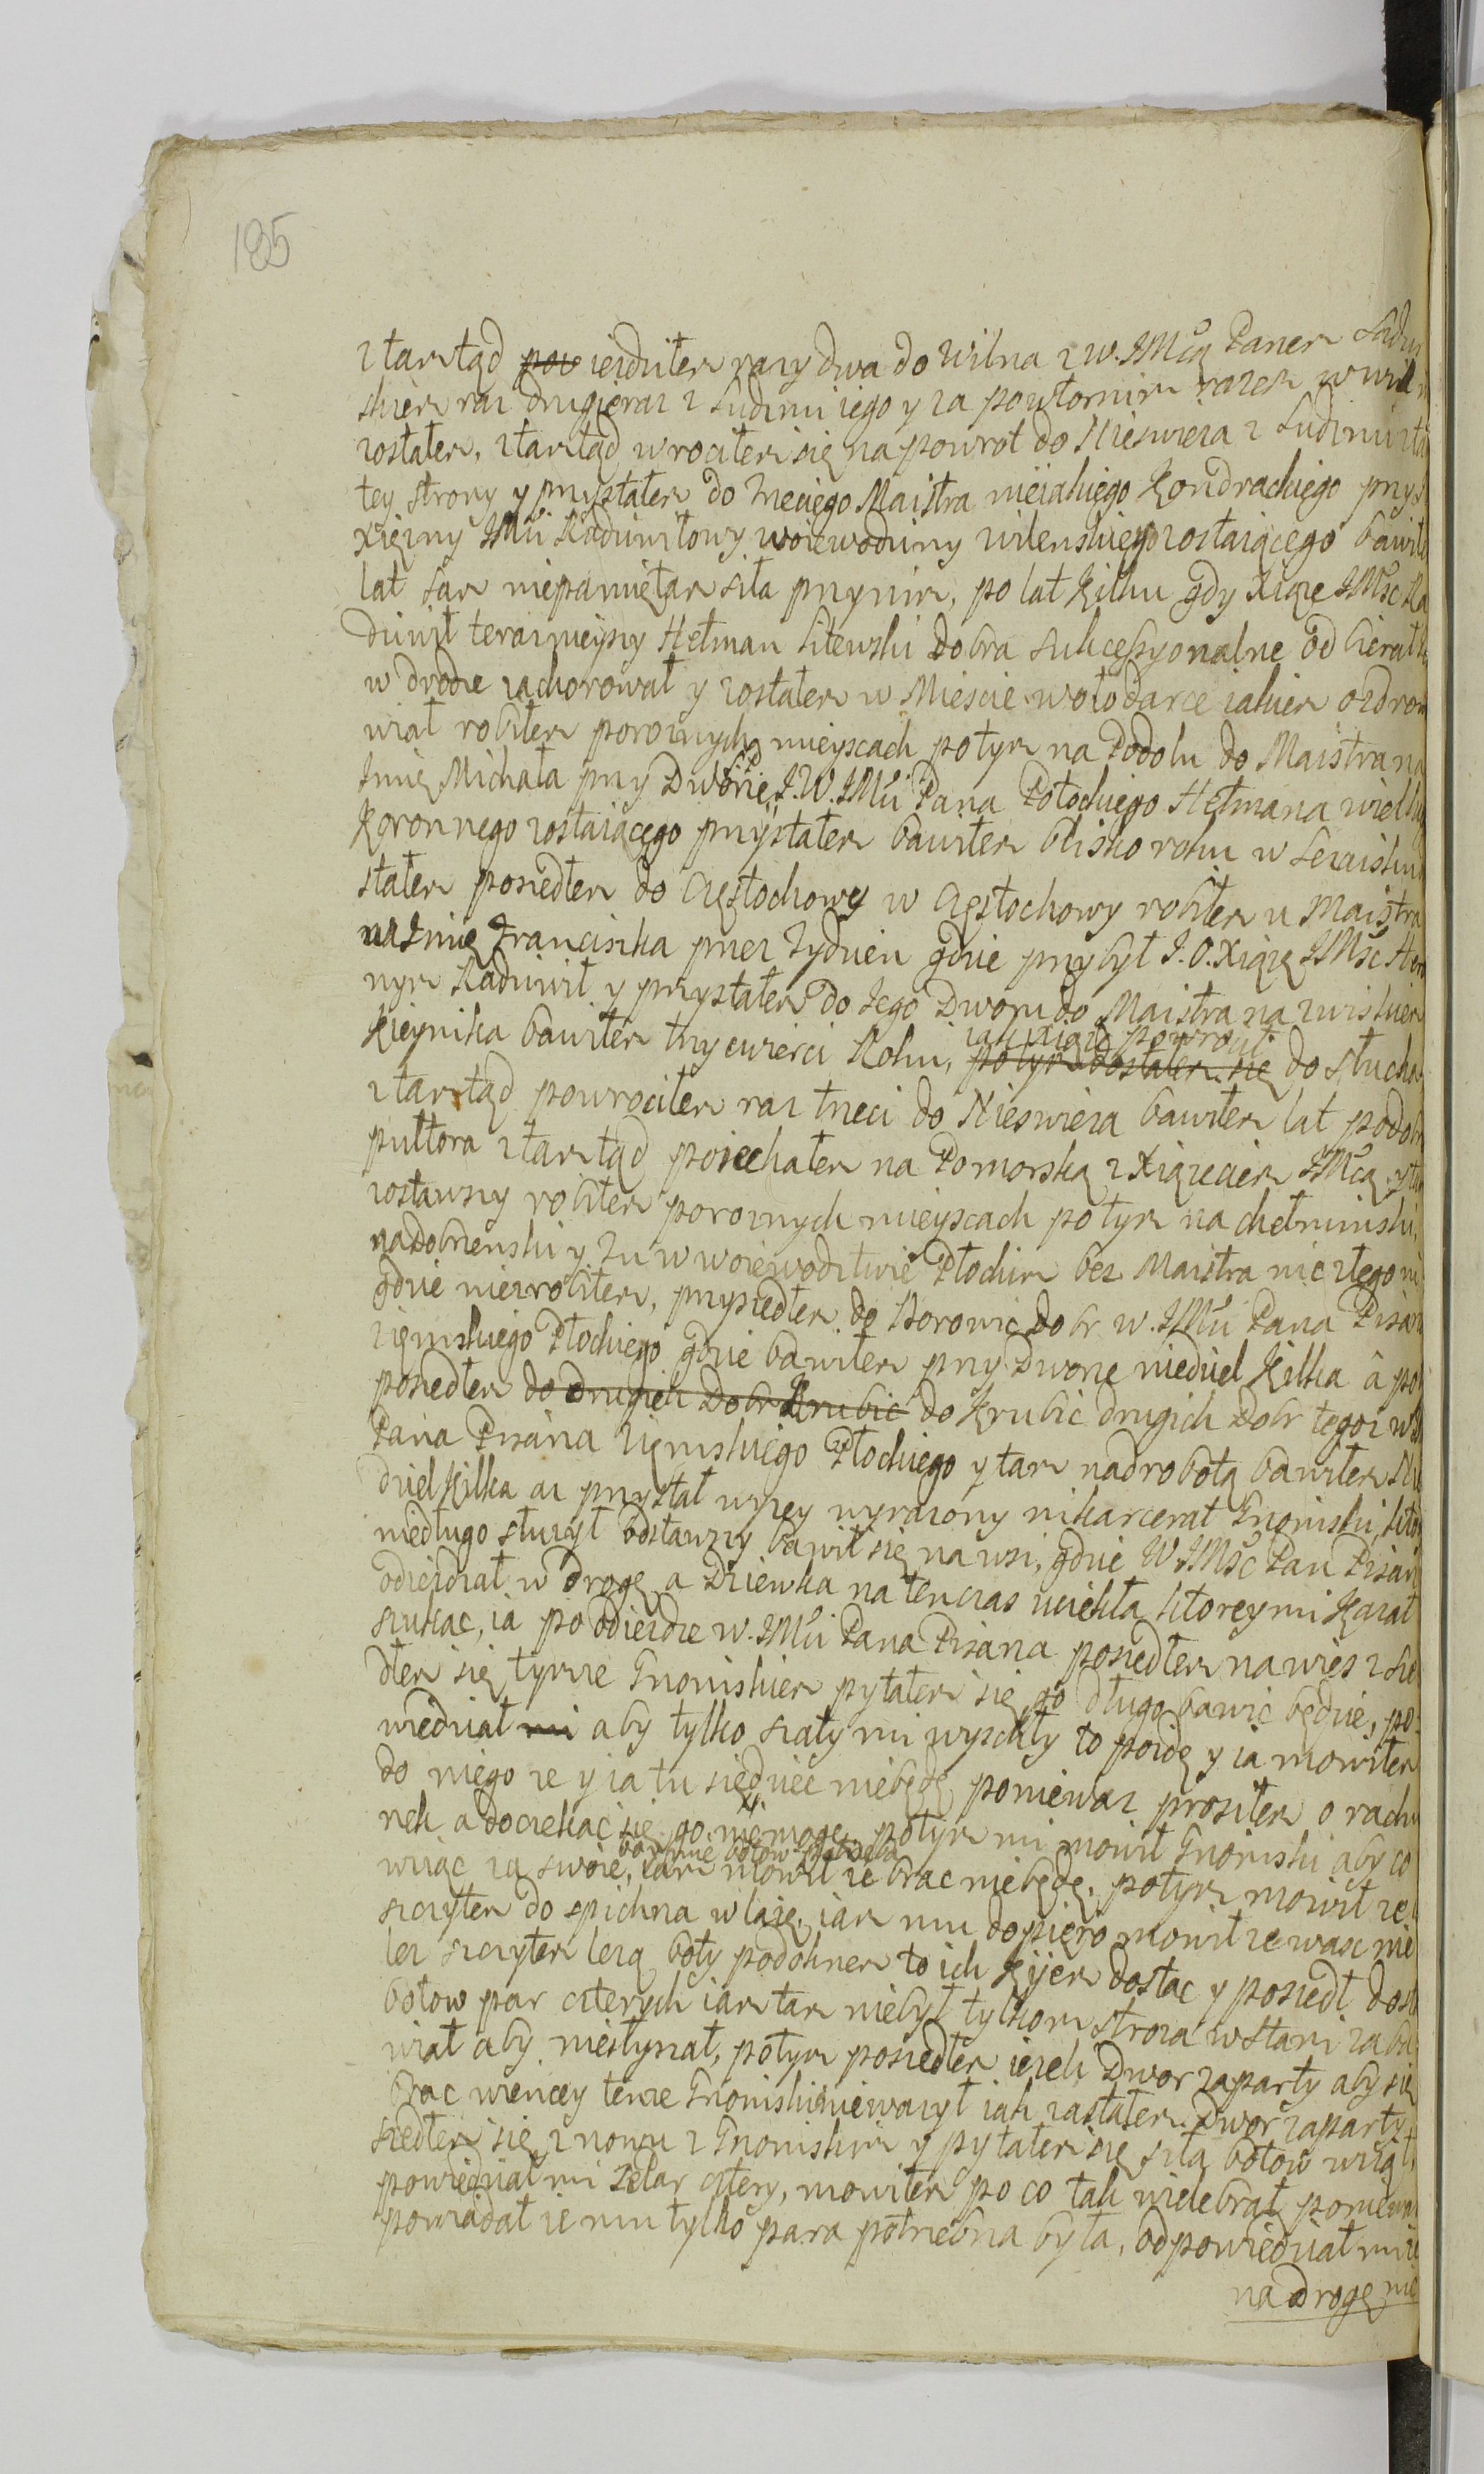 185
ztamtąd pow iezdziłem razy dwa do Wilna z W. JMcią Panem
skiem raz drugi raz z Ludzmi iego y za powtornim razem w wil
zostałem, ztamtąd wrociłem się na powrot do Nieswieza z Ludzmi
tey strony y przystałem do trzeciego Maistra nieiakiego Kondrackiego przy
xięzny JMci Radziwiłowy woiewodziny wilenskiey zostaiącego bawił
lat sam niepamiętam siła przynim, po lat kilku gdy Xiąze JMśc Ra
dziwił teraznieyszy Hetman Litewski dobra sukcessyonalne odbierał
w drodze zachorował y zostałem w Miescie wołodarce iakiem ozdrow
wiał robiłem poroznych mieyscach potym na Podolu do Maistra na
Jmię Michała przy Dworze J.W. JMci Pana Potockiego Hetmana wielkie
Koronnego zostaiącego przystałem bawiłem blisko roku w
stałem poszedłem do Częstochowy w Częstochowy robiłem u Maistra
na Jmię Franciszka przez Tydzien gdzie przybył J.O. Xiąze JMśc
nym Radziwił y przystałem do Jego Dworu do Maistra nazwiskiem
Kieynika bawiłem trzy cwierci Roku, potym dostałem się iak xiąze powrocił do słucka
ztamtąd powrociłem raz trzeci do Nieswieza bawiłem lat podob
pułtora ztamtąd poiechałem na Pomorską z Xiązeciem JMcią y tam
zostawszy robiłem poroznych mieyscach potym na chełminski,
na dobrzenski y tu w woiewodztwie Płockim bez Maistra nic złego ni
gdzie niezrobiłem, przyszedłem do Borowic Dobr W. JMci Pana Pisarza
ziemskiego Płockiego gdzie bawiłem przy Dworze niedziel kilka a po
poszedłem do drugich Dobr Krubic do Krubic drugich Dobr tegoz W
Pana Pisarza ziemskiego Płockiego y tam nadrobotą bawiłem Nie
dziel kilka az przystał wyzey wyrazony inkarcerat Gnoinski, ktor
niedługo słuzył odstawszy bawił się na wsi, gdzie W JMśc Pan Pisarz
odiezdzał w drogę a Dziewka natenczas uciekła ktorey mi kazał
szukac, ia po odiezdzie W. JMci Pana Pisarza poszedłem na wies z sze
dłem się tymze Gnoinskiem pytałem się go długo bawic będzie, po-
wiedział mi aby tylko szaty mi wyschły to poidę y ia mowiłem
do niego ze y ia tu siedziec niebędę poniewaz prosiłem o rachu
nek a doczekac się go niemogę, potym mi mowił Gnoinski aby co
wziąc za swoie, bo mnie botow potrzeba iam mowił ze brac niebędę, potym mowił ze
szczytem do spichrza wlazę, iam mu dopiero mowił ze wasc nie
lez szczytem lezą boty podoknem to ich kijem dostac y poszedł dost
botow par czterych iam tam niebył tylkom stroza w stani zaba
wiał aby niesłyszał, potym poszedłem iezeli Dwor zaparty aby się
brac wiencey tenze Gnoinski niewazył iak zastałem Dwor zaparty
szedłem się znowu z Gnoinskim y pytałem się siła botow wziął,
powiedział mi ze par cztery, mowiłem po co tak wiele brał poniewaz
powiadał ze mu tylko para potrzebna była, odpowiedział mi ze
na drogę nie